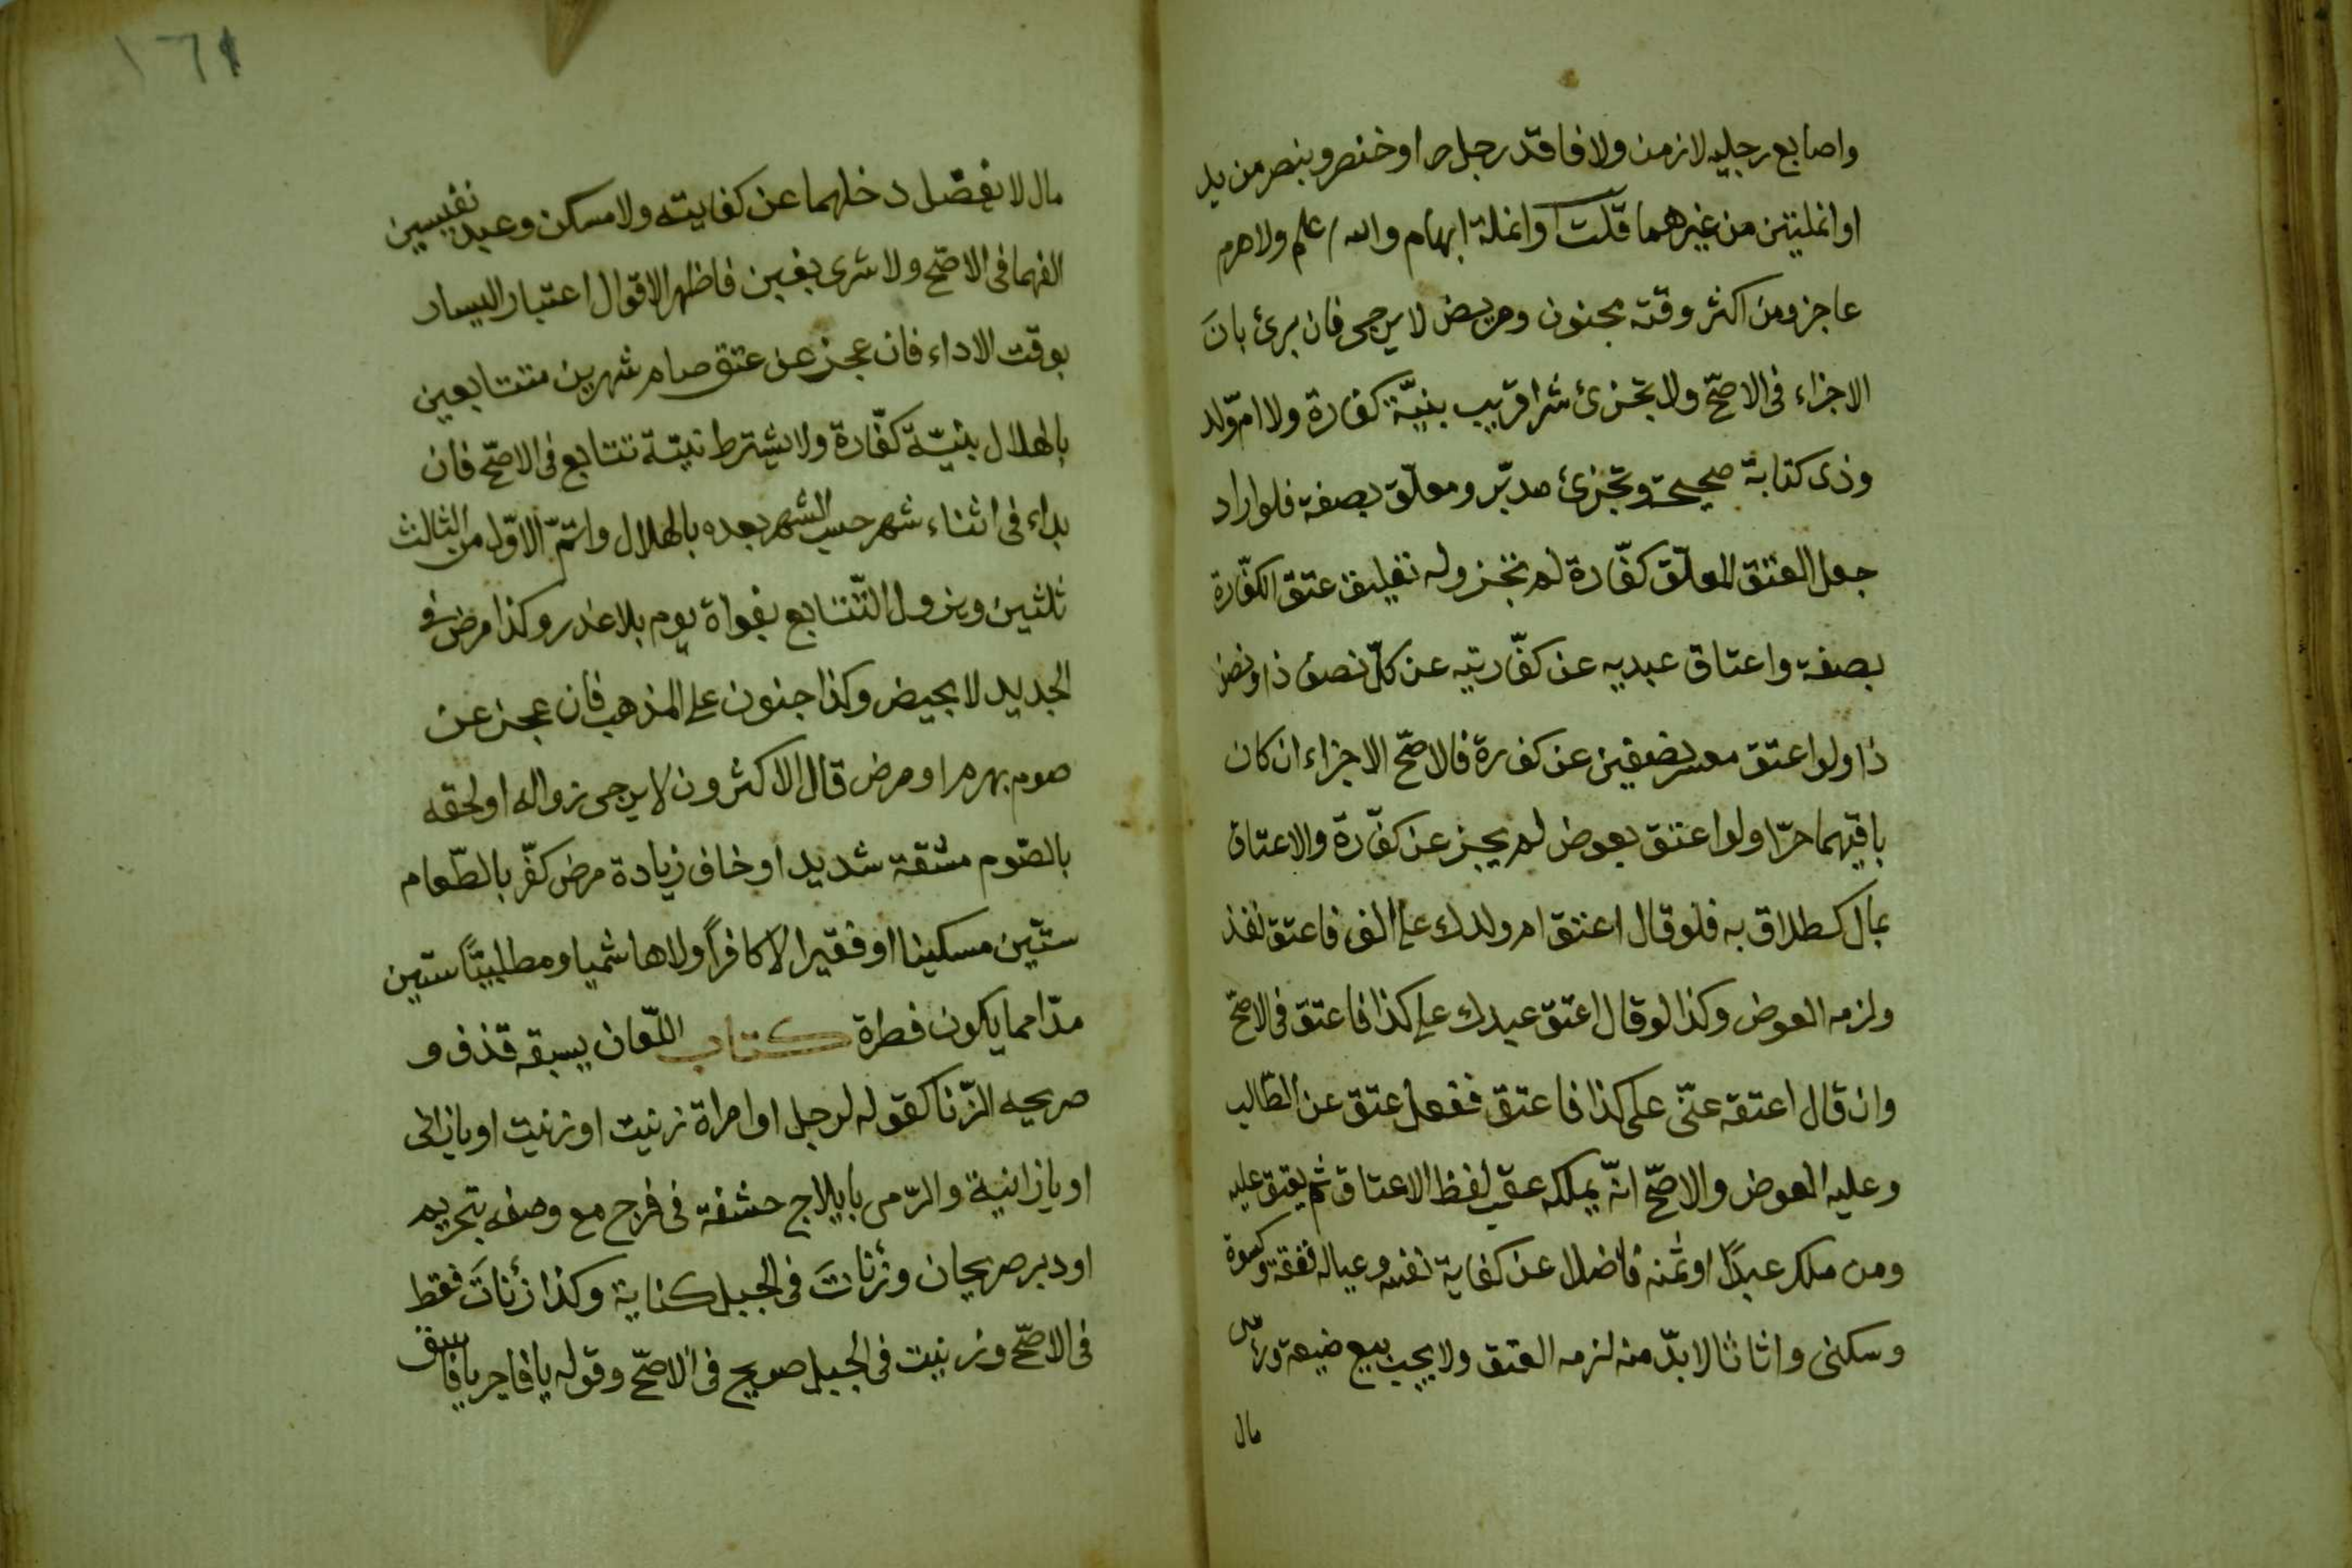 واصابع رجليه لا زمن ولا فاقد رجل او خنصر وبنصر من يد
او انملتين من غيرهما قلت او انملة ابهام والله اعلم ولا هرم
عاجز ومن اكثر وقته مجنون ومريض لا يرجى فان برئ بان
الاجزاء فى الاصحّ ولا يجزئ شرا قريب بنيّة كفارة ولا امّ ولد
وذى كتابة صحيحة وتجزئ مدبّر ومعلّق بصفة فلو اراد
جعل العتق المعلّق كفّارة لم تجز وله تعليق عتق الكفّارة
بصفة واعتاق عبديه عن كفّارتيه عن كلّ نصف ذا ونصف
ذا ولو اعتق معسر نصفين عن كفرة فالاصحّ الاجزاء ان كان
باقيهما حرّا ولو اعتق بعوض لم يجز عن كفّارة والاعتاق
بمال كطلاق به فلو قال اعتق ام ولدك على الف فاعتق نفذ
ولزمه العوض وكذا لو قال اعتق عبدك على كذا فاعتق فى الاصحّ
وان قال اعتقه عنّى على كذا فاعتق ففعل عتق عن الطّالب
وعليه العوض والاصحّ انّه يملكه عقب لفظ الاعتاق ثم يعتق عليه
ومن ملك عبدًا او ثمنه فاضلا عن كفاية نفسه وعياله نفقة وكسوة
وسكنى واثاثا لا بدّ منه لزمه العتق ولا يجب بيع ضيعة ورأس
مال
١٦١
مال لا يفضل دخلهما عن كفايته ولا مسكن وعبد نفيسين
الفهما فى الاصحّ ولا شرى بغبن فاظهر الاقوال اعتبار اليسار
بوقت الاداء فان عجز عن عتق صام شهرين متتابعين
بالهلال بنيّة كفّارة ولا يشترط نيّة تتابع فى الاصحّ فان
بداء فى اثناء شهر حسب الشهر بعده بالهلال واتمّ الاوّل من الثالث
ثلثين ويزول التّتابع بفواة يوم بلا عذر وكذا مرض فى
الجديد لا بحيض وكذا جنون على المذهب فان عجز عن
صوم بهرم او مرض قال الاكثرون لا يرجى زواله او لحقه
بالصّوم مشقة شديد او خاف زيادة مرض كفّر بالطّعام
ستّين مسكينا او فقيرا لا كافراً ولا هاشميا ومطلبيّاً ستين
مدّا مما يكون فطرة كتاب اللّعان يسبقه قذف و
صريحه الزّنا كقوله لرجل او امراة زنيت او زنيت او يازانى
او يازانية والرّمى بايلاج حشفة فى فرج مع وصفه بتحريم
او دبر صريحان وزنأتَ فى الجبل كناية وكذا زنأتَ فقط
فى الاصحّ وزنيت فى الجبل صريح فى الاصحّ وقوله يا فاجر يا فاسق